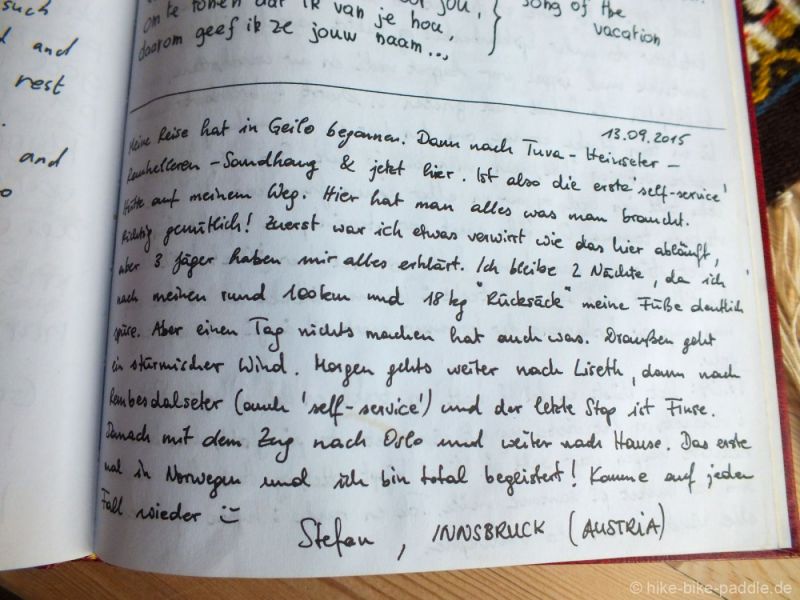 such
and
rest
and
om te tonen dat ik van je hou,
daarom geef ik ze jouw naam...
song of the
vacation
13.09.2015
Meine Reise hat in Geilo begonnen. Dann nach Tuva - Heinseter -
Rauhelleren - Sandhaug & jetzt hier. Ist also die erste 'self-service'
Hütte auf meinem Weg. Hier hat man alles was man braucht.
Richtig gemütlich! Zuerst war ich etwas verwirrt wie das hier abläuft,
aber 3 Jäger haben mir alles erklärt. Ich bleibe 2 Nächte, da ich
nach meinen rund 100km und 18kg "Rücksäck" meine Füße deutlich
spüre. Aber einen Tag nichts machen hat auch was. Draußen geht
ein stürmischer Wind. Morgen gehts weiter nach Liseth, dann nach
Rembesdalseter (auch 'self-service') und der letzte Stop ist Finse.
Danach mit dem Zug nach Oslo und weiter nach Hause. Das erste
mal in Norwegen und ich bin total begeistert! Komme auf jeden
Fall wieder
Stefan, INNSBRUCK (AUSTRIA)
© hike-bike-paddle.de